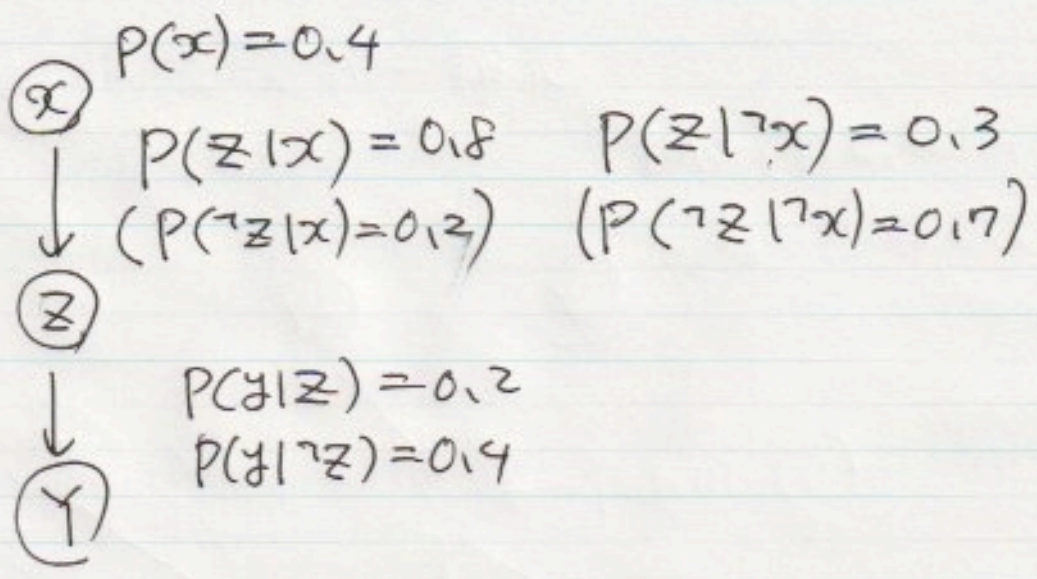 P(x)=0.4
x
P(z|x)=0.8 P(z|¬x)=0.3
(P(¬z|x)=0.2) (P(¬z|¬x)=0.7)
z
P(y|z)=0.2
P(y|¬z)=0.4
Y